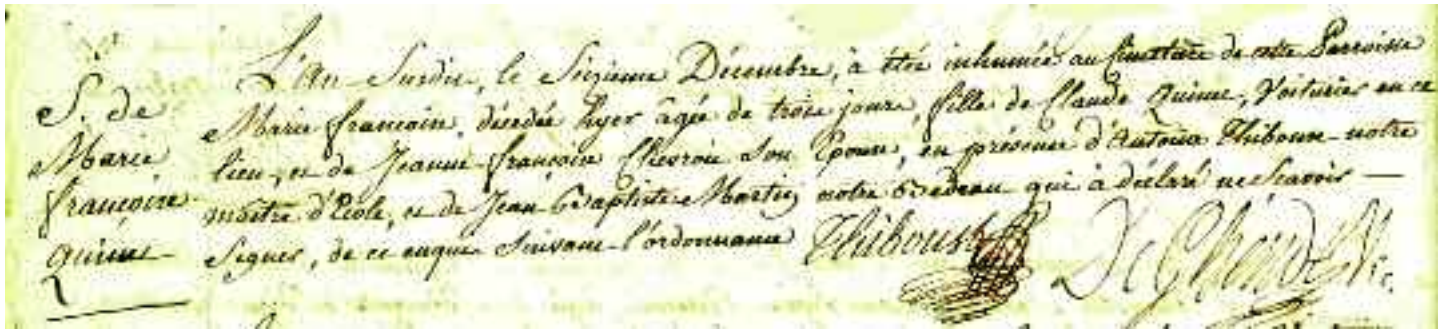 S. de
Marie
françoise
quinue
L'an Susdit, le Seizieme Décembre, à été inhumée au Cimetiere de cette Parroisse
Marie françoise, décedée hyer agée de trois jours, fille de Claude quinue, Voiturier en ce
lieu, et de Jeanne françoise Chevroie Son Epouse, en présence d'Antoine Thiboux notre
maître d'Ecole, et de Jean Baptiste Martin notre Bedeau qui à déclaré ne Scavoir —
Signer, de ce enquis Suivant l'ordonnance Thiboux